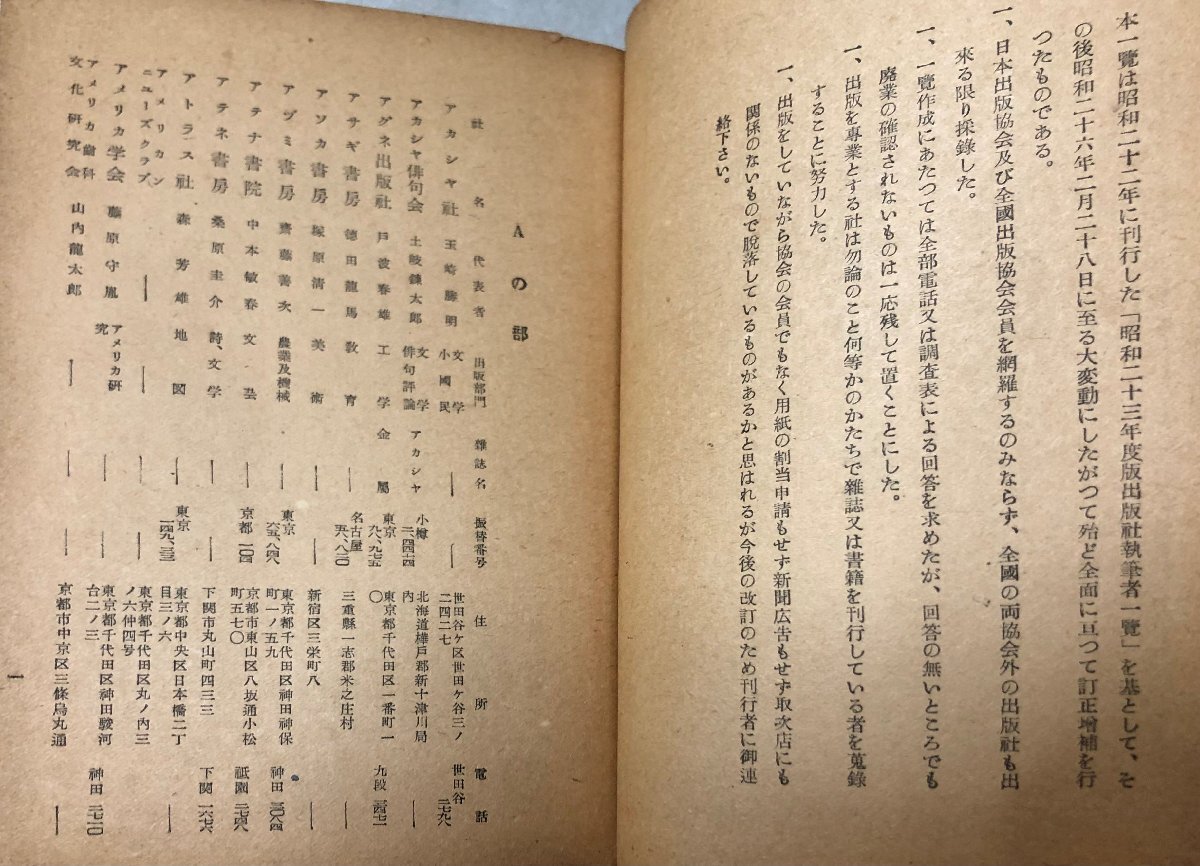 本一覽は昭和二十二年に刊行した「昭和二十三年度版出版社執筆者一覽」を基として、そ
の後昭和二十六年二月二十八日に至る大変動にしたがつて殆ど全面に亘つて訂正增補を行
つたものである。
一、日本出版協会及び全國出版協会会員を網羅するのみならず、全國の両協会外の出版社も出
來る限り採錄した。
一、一覽作成にあたつては全部電話又は調査表による回答を求めたが、回答の無いところでも
廃業の確認されないものは一応残して置くことにした。
一、出版を專業とする社は勿論のこと何等かのかたちで雜誌又は書籍を刊行している者を蒐錄
することに努力した。
一、出版をしていながら協会の会員でもなく用紙の割当申請もせず新聞広告もせず取次店にも
関係のないもので脫落しているものがあるかと思はれるが今後の改訂のため刊行者に御連
絡下さい。
Aの部
社名 代表者 出版部門 雜誌名 振替番号 住所 電話
アカシヤ社 玉崎勝明 文学 小國民 ― ― 世田谷ケ区世田ケ谷三ノ二四二七 世田谷 二七九八
アカシヤ俳句会 土岐錬太郎 文学 俳句評論 アカシヤ 小樽 北海道樺戸郡新十津川局内 ―
アグネ出版社 戸波春雄 工学 金属 東京 東京都千代田区一番町一〇 九段
アサギ書房 德田龍馬 敎育 ― 名古屋 五八、八二〇 三重縣一志郡米之庄村 ―
アソカ書房 塚原清一 美術 ― ― 新宿区三栄町八 ―
アヅミ書房 齊藤善次 農業及機械 ― 東京 東京都千代田区神田神保町一ノ五九 神田
アテナ書院 中本敏春 文芸 ― 京都 一〇四 京都市東山区八坂通小松町五七〇 祇園
アテネ書房 桑原圭介 詩、文学 ― ― 下関市丸山町四三三 下関 一六七六
アトラス社 森芳雄 地図 ― 東京 東京都中央区日本橋二丁目三ノ六 ―
アメリカンニユーズクラブ ― ― ― ― 東京都千代田区丸ノ内三ノ六仲四号 ―
アメリカ学会 藤原守胤 アメリカ研究 ― ― 東京都千代田区神田駿河台二ノ三 神田 二七二〇
アメリカ齒科文化研究会 山内龍太郎 ― ― ― 京都市中京区三條烏丸通 ―
一